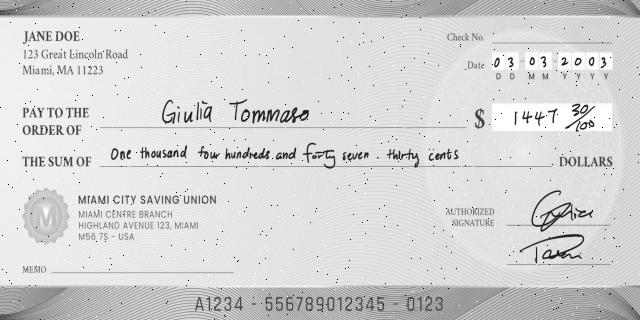 JANE DOE
123 Great Lincoln Road
Miami, MA 11223
Check No.
Date 03 03 2003
D D M M Y Y Y Y
PAY TO THE ORDER OF Giulia Tommaso
$ 1447 30/100
THE SUM OF One thousand four hundreds and forty seven . thirty cents DOLLARS
MIAMI CITY SAVING UNION
MIAMI CENTRE BRANCH
HIGHLAND AVENUE 123, MIAMI
M56 7S - USA
AUTHORIZED SIGNATURE
MEMO
A1234 - 556789012345 - 0123